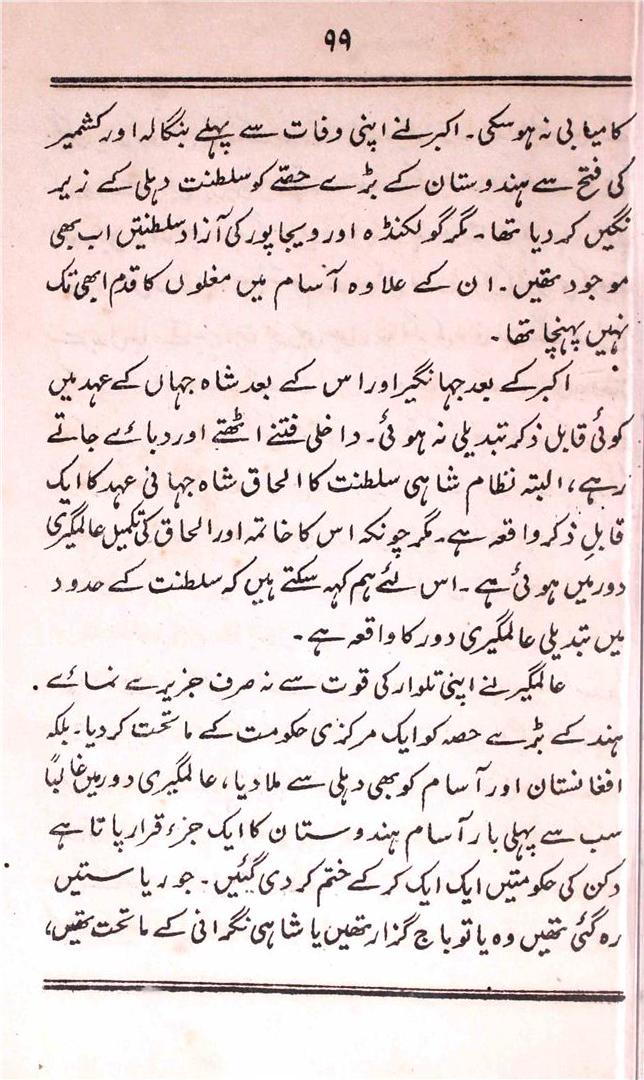 ۹۹
کامیابی نہ ہوسکی۔ اکبر نے اپنی وفات سے پہلے بنگالہ اور کشمیر
کی فتح سے ہندوستان کے بڑے حصّے کو سلطنت دہلی کے زیر
نگیں کر دیا تھا۔ مگر گولکنڈہ اور ویجاپور کی آزاد سلطنتیں اب بھی
موجود تھیں۔ ان کے علاوہ آسام میں مغلوں کا قدم ابھی تک
نہیں پہنچا تھا۔
اکبر کے بعد جہانگیر اور اس کے بعد شاہ جہاں کے عہد میں
کوئی قابل ذکر تبدیلی نہ ہوئی۔ داخلی فتنے اٹھتے اور دبائے جاتے
رہے، البتہ نظام شاہی سلطنت کا الحاق شاہ جہانی عہد کا ایک
قابلِ ذکر واقعہ ہے۔ مگر چونکہ اس کا خاتمہ اور الحاق کی تکمیل عالمگیری
دور میں ہوئی ہے۔ اس لئے ہم کہہ سکتے ہیں کہ سلطنت کے حدود
میں تبدیلی عالمگیری دور کا واقعہ ہے۔
عالمگیر نے اپنی تلوار کی قوت سے نہ صرف جزیرے نمائے
ہند کے بڑے حصہ کو ایک مرکزی حکومت کے ماتحت کر دیا۔ بلکہ
افغانستان اور آسام کو بھی دہلی سے ملا دیا، عالمگیری دور میں غالباً
سب سے پہلی بار آسام ہندوستان کا ایک جزء قرار پاتا ہے
دکن کی حکومتیں ایک ایک کر کے ختم کر دی گئیں۔ جو ریاستیں
رہ گئی تھیں وہ یا تو باج گزار تھیں یا شاہی نگرانی کے ماتحت تھیں،